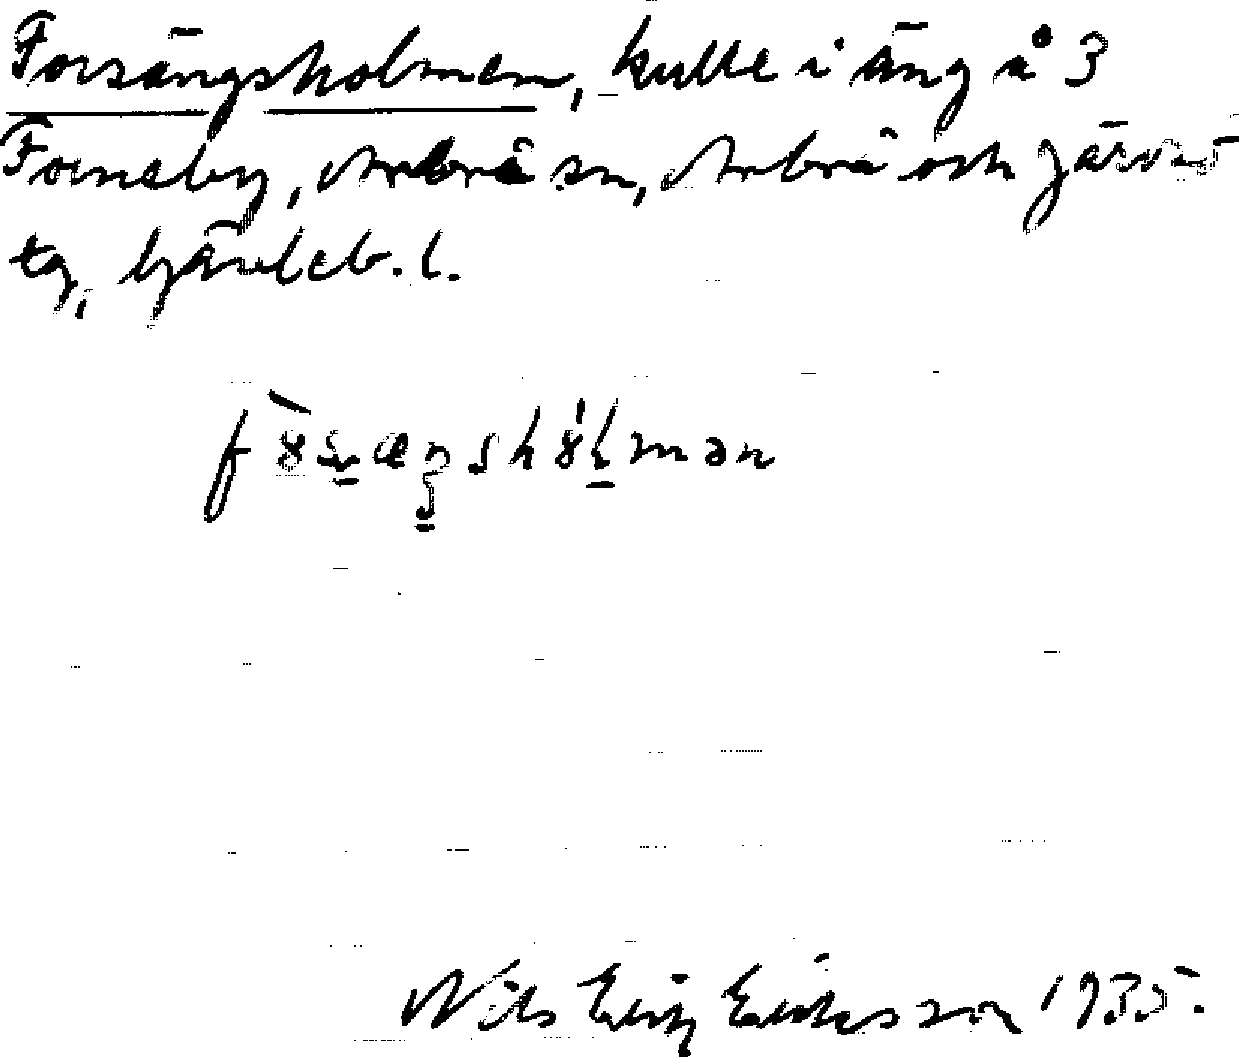 Forsängsholmen, kulle i äng å 3
Forneby, Arbrå sn, Arbrå och Järvsö
tg, Gävleb. l.
Nils Erik Eriksson 1935.